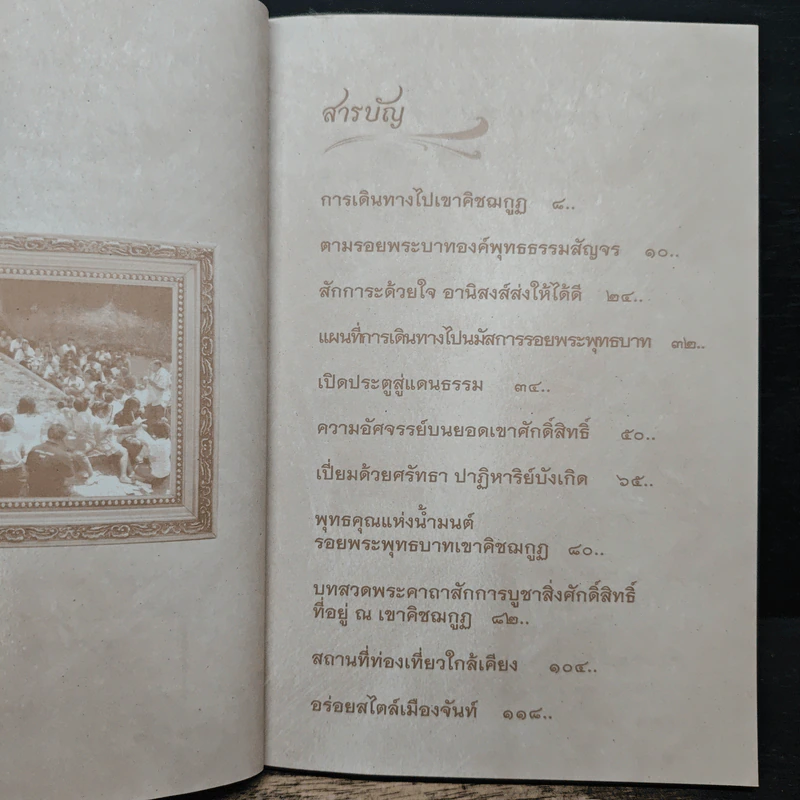 สารบัญ
การเดินทางไปเขาคิชฌกูฏ ๘..
ตามรอยพระบาทองค์พุทธธรรมสัญจร ๑๐..
สักการะด้วยใจ อานิสงส์ส่งให้ได้ดี ๒๔..
แผนที่การเดินทางไปนมัสการรอยพระพุทธบาท ๓๒..
เปิดประตูสู่แดนธรรม ๓๔..
ความอัศจรรย์บนยอดเขาศักดิ์สิทธิ์ ๕๐..
เปี่ยมด้วยศรัทธา ปาฏิหาริย์บังเกิด ๖๕..
พุทธคุณแห่งน้ำมนต์
รอยพระพุทธบาทเขาคิชฌกูฏ ๘๐..
บทสวดพระคาถาสักการบูชาสิ่งศักดิ์สิทธิ์
ที่อยู่ ณ เขาคิชฌกูฏ ๘๒..
สถานที่ท่องเที่ยวใกล้เคียง ๑๐๔..
อร่อยสไตล์เมืองจันท์ ๑๑๘..